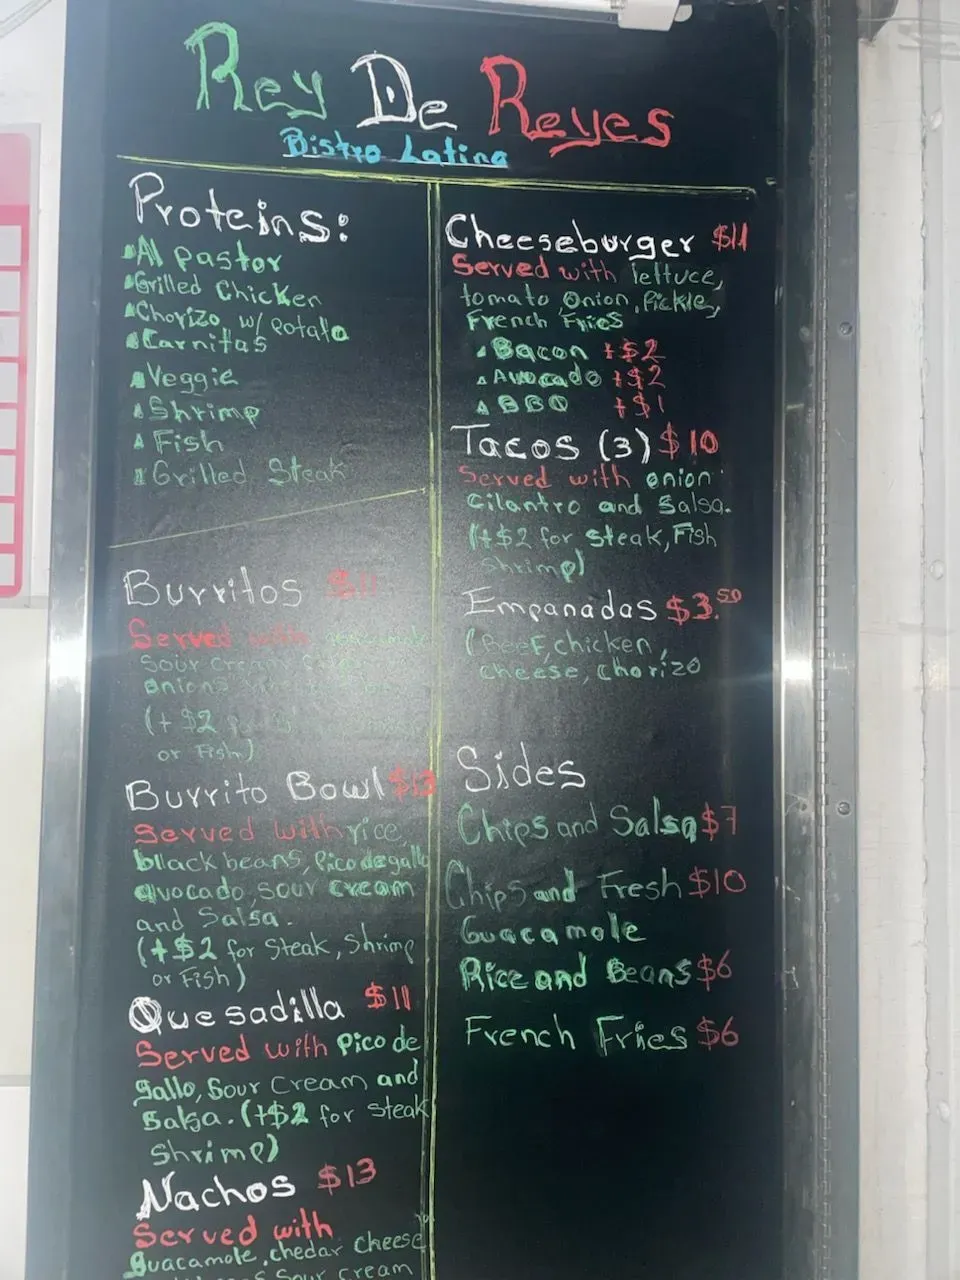 Rey De Reyes
Bistro Latino
Proteins:
Al Pastor
Grilled Chicken
Chorizo w/ Potato
Carnitas
Veggie
Shrimp
Fish
Grilled Steak
Burritos $11
Served with
sour cream
onions
(+ $2
or Fish)
Burrito Bowl $13
Served with rice,
bllack beans, Pico de gallo
avocado, sour cream
and Salsa.
(+$2 for Steak, Shrimp
or Fish)
Quesadilla $11
Served with Pico de
gallo, Sour Cream and
Salsa. (+$2 for Steak
Shrimp)
Nachos $13
Served with
Guacamole, chedar cheese
Sour cream
Cheeseburger $11
Served with lettuce,
tomato, onion, Pickle,
French Fries
Bacon +$2
Avocado +$2
BBQ +$1
Tacos (3) $10
Served with onion
Cilantro and Salsa.
(+$2 for Steak, Fish
Shrimp)
Empanadas $3.50
(Beef, chicken,
cheese, Chorizo
Sides
Chips and Salsa $7
Chips and Fresh $10
Guacamole
Rice and Beans $6
French Fries $6